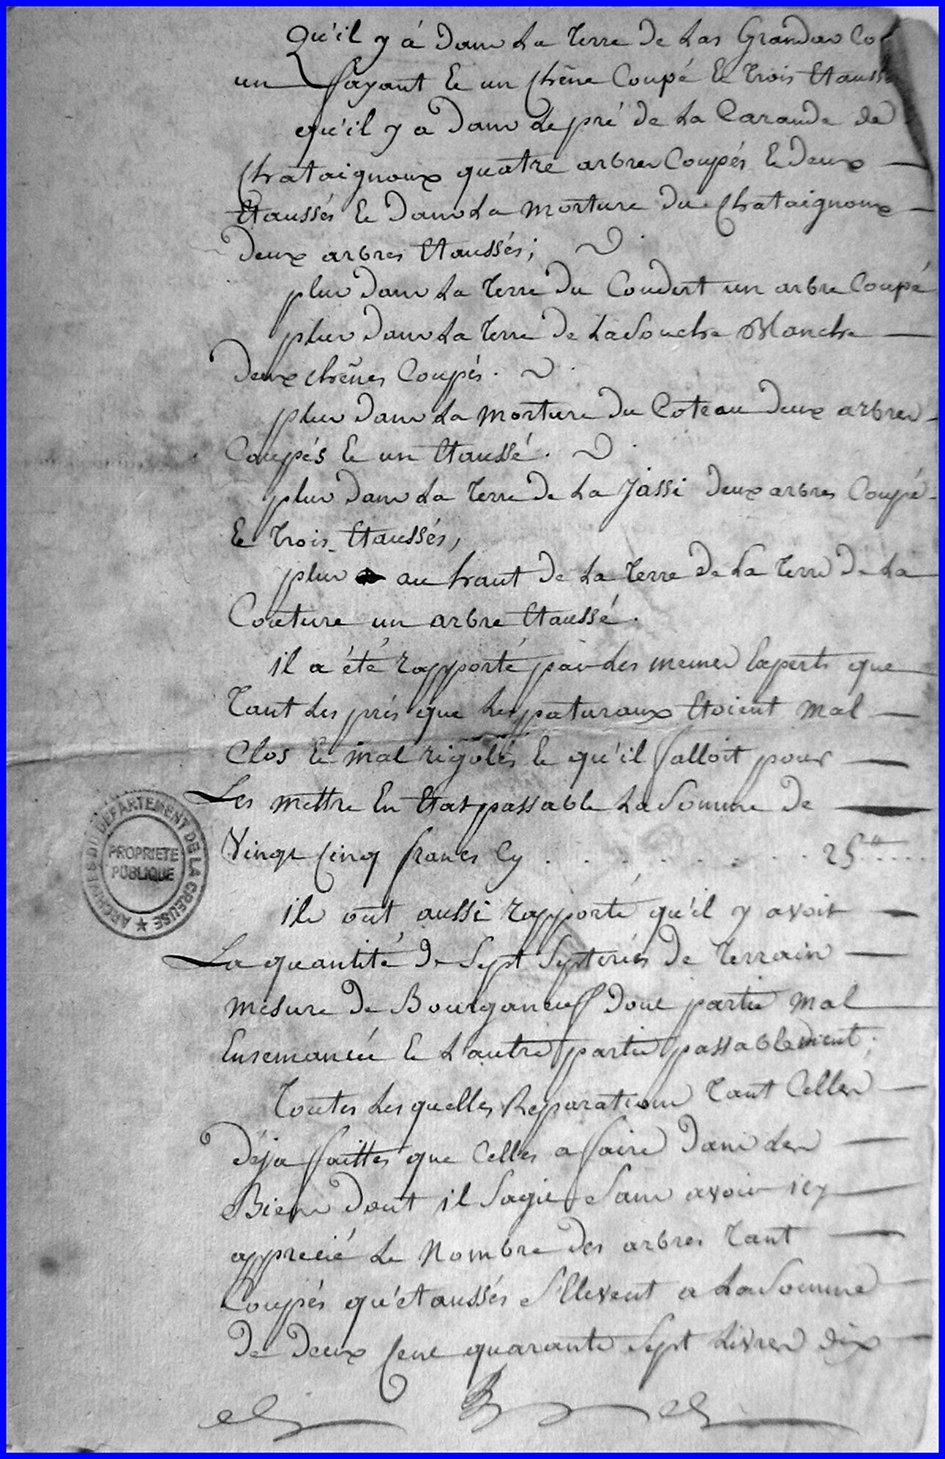 Qu'il y à dans La Terre de Las Grandas
un fayant Et un Chêne Coupé Et Trois Etaussés
qu'il y a dans Le pré de La Caraude de
Chataignoux quatre arbres Coupés Et deux
Etaussés Et dans La morture du Chataignoux
deux arbres Etaussés;
plus dans La Terre du Coudert un arbre Coupé
plus dans La Terre de La Souche Blanche
deux chênes Coupés.
plus dans La morture du Coteau deux arbres
Coupés Et un Etaussé.
plus dans La Terre de La Jassi deux arbres Coupé
Et Trois Etaussés,
plus au haut de La Terre de La Terre de La
Couture un arbre Etaussé.
il a été rapporté par les memes Experts que
Tant Les prés que Les paturaux Etoient mal
Clos Et mal rigolés Et qu'il falloit pour
Les mettre En Etat passable La Somme de
Vingt Cinq francs Cy . . . . . . . . 25
ils ont aussi rapporté qu'il y avoit
La quantité de Sept Septerées de Terrain
mesure de Bourganeuf dont partie mal
Ensemancée Et L'autre partie passablement.
Toutes Lesquelles Reparations Tant Celles
déja faittes que Celles a faire dans Les
Biens dont il Sagit Sans avoir icy
apprecié Le Nombre des arbres Tant
Coupés qu'étaussés S'Elevent a La Somme
de deux Cent quarante Sept Livres dix
ARCHIVES DU DÉPARTEMENT DE LA CREUSE
PROPRIÉTÉ
PUBLIQUE